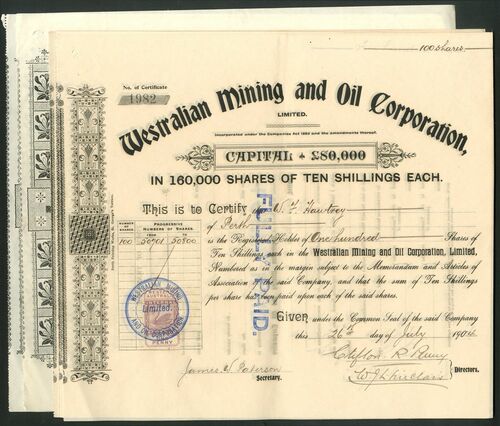 100 Shares
No. of Certificate
1982
Westralian Mining and Oil Corporation,
LIMITED.
Incorporated under the Companies Act 1892 and the amendments thereof.
CAPITAL - £80,000
IN 160,000 SHARES OF TEN SHILLINGS EACH.
This is to Certify that
of Perth
is the Registered Holder of One hundred Shares of
Ten Shillings each in the Westralian Mining and Oil Corporation, Limited,
Numbered as in the margin subject to the Memorandum and Articles of
Association of the said Company, and that the sum of Ten Shillings
per share has been paid upon each of the said shares.
NUMBER OF SHARES
PROGRESSIVE NUMBERS OF SHARES.
100 50701 50800
FULLY PAID.
WESTRALIAN MINING AND OIL CORPORATION
Limited.
AUSTRALIA
PENNY
Given under the Common Seal of the said Company
this 26th day of July 1904
James W Paterson
Secretary.
Directors.